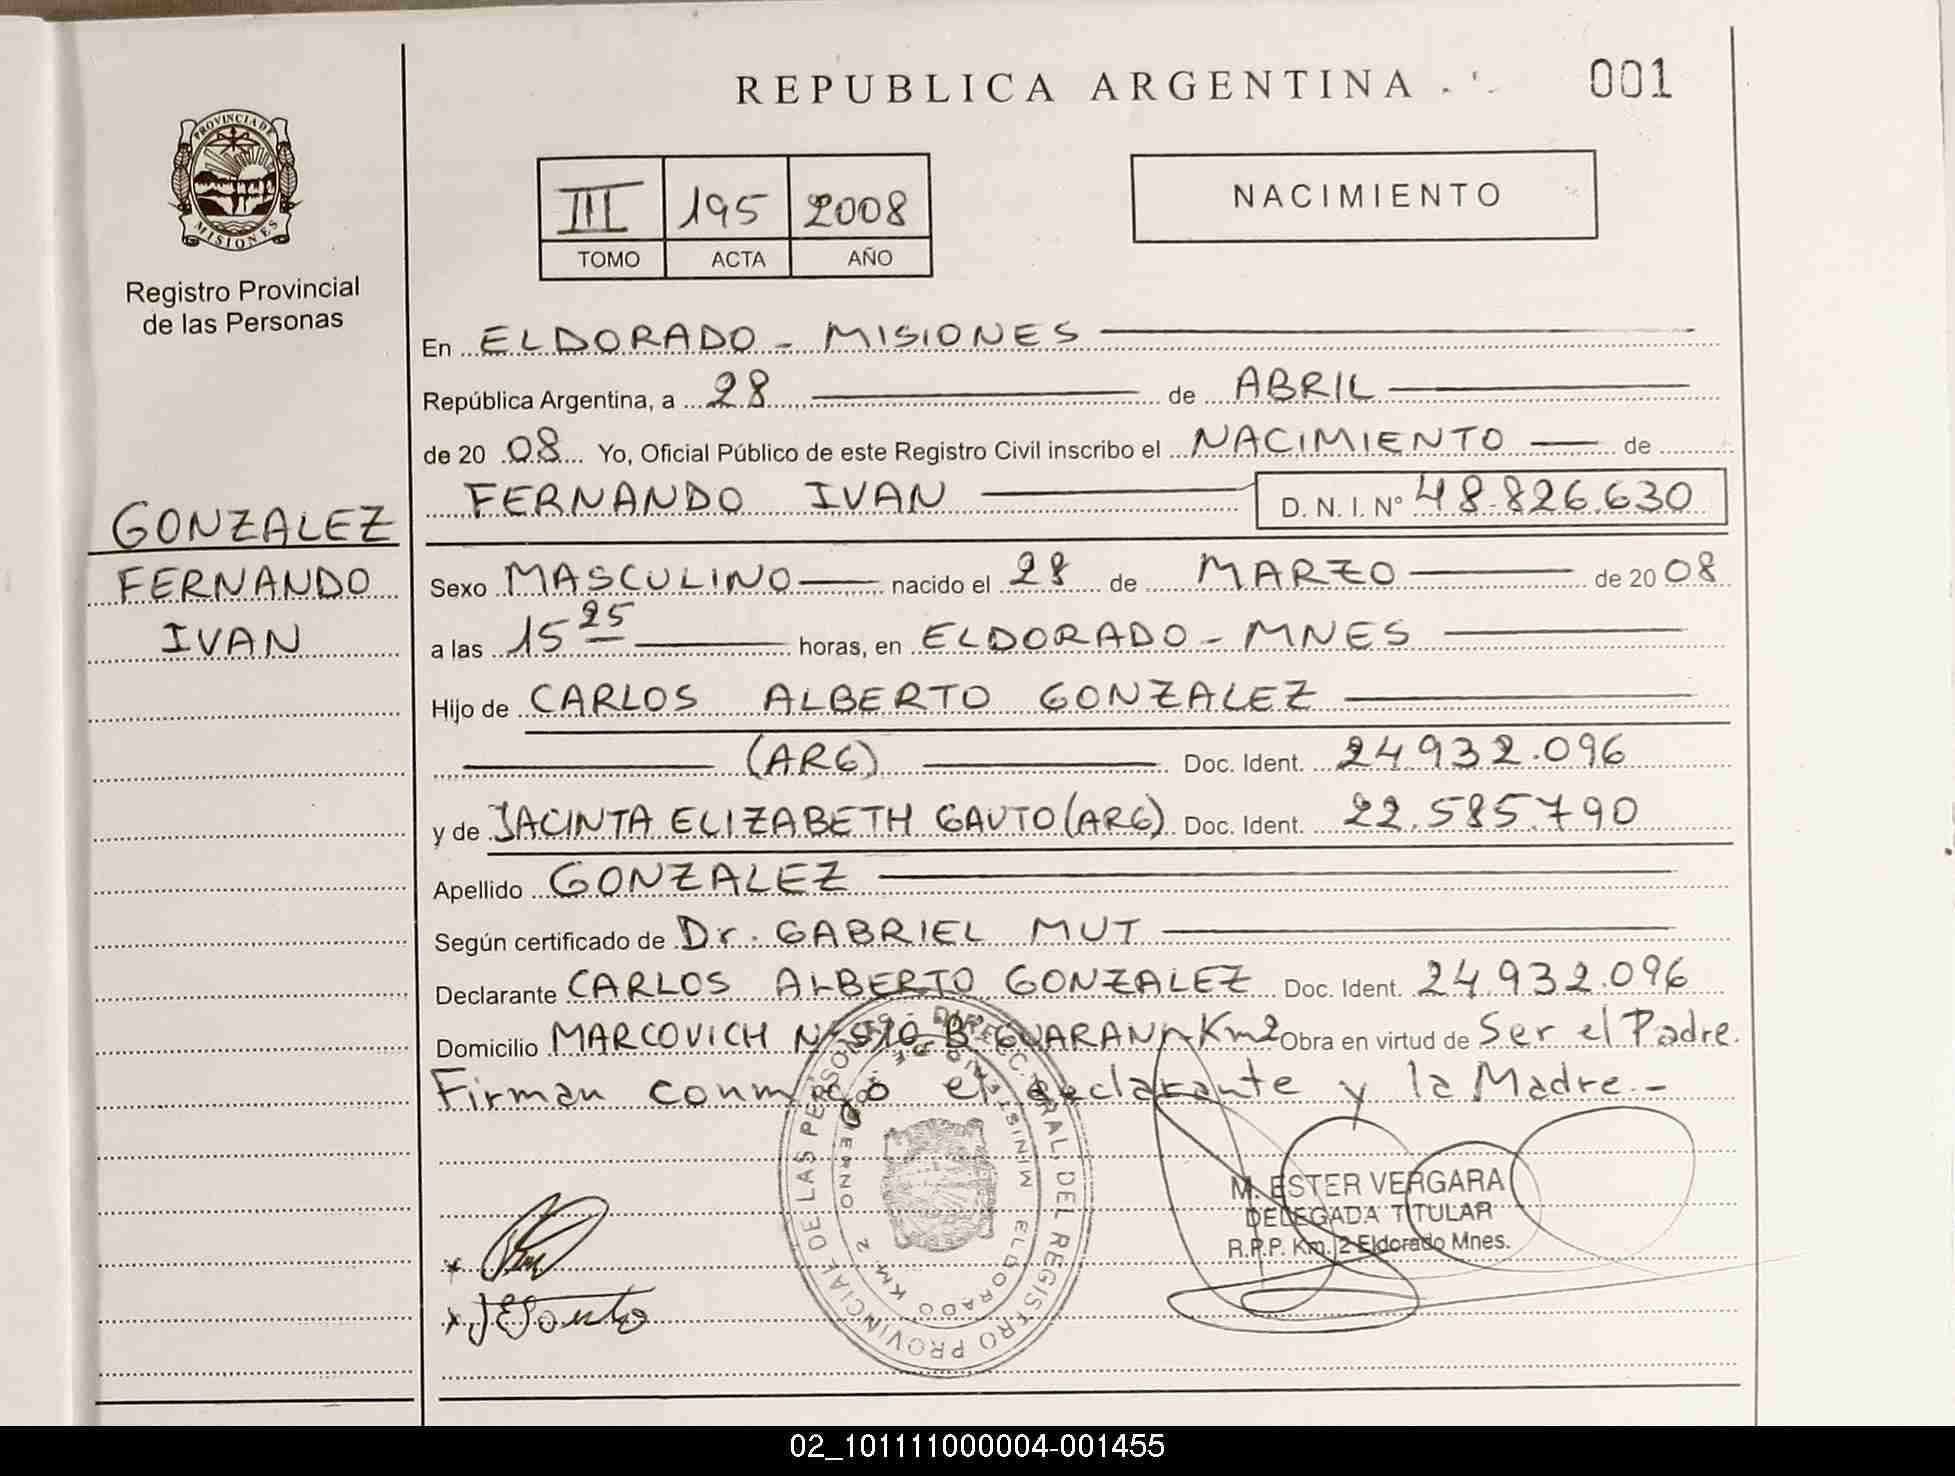 REPUBLICA ARGENTINA
001
PROVINCIA DE
MISIONES
Registro Provincial
de las Personas
III 195 2008
TOMO ACTA AÑO
NACIMIENTO
En ELDORADO - MISIONES
República Argentina, a 28 de ABRIL
de 20 08 Yo, Oficial Público de este Registro Civil inscribo el NACIMIENTO de
FERNANDO IVAN D. N. I. N° 48.826.630
GONZALEZ
FERNANDO
IVAN
Sexo MASCULINO nacido el 28 de MARZO de 20 08
a las 15 25 horas, en ELDORADO - MNES
Hijo de CARLOS ALBERTO GONZALEZ
(ARG) Doc. Ident. 24932.096
y de JACINTA ELIZABETH GAUTO (ARG) Doc. Ident. 22.585.790
Apellido GONZALEZ
Según certificado de Dr. GABRIEL MUT
Declarante CARLOS ALBERTO GONZALEZ Doc. Ident. 24.932.096
Domicilio MARCOVICH Km2 Obra en virtud de Ser el Padre.
Firman conmigo el declarante y la Madre.-
DIRECC. GRAL. DEL REGISTRO PROVINCIAL DE LAS PERSONAS
ELDORADO KM 2
M. ESTER VERGARA
DELEGADA TITULAR
R.P.P. Km. 2 Eldorado Mnes.
02_101111000004-001455